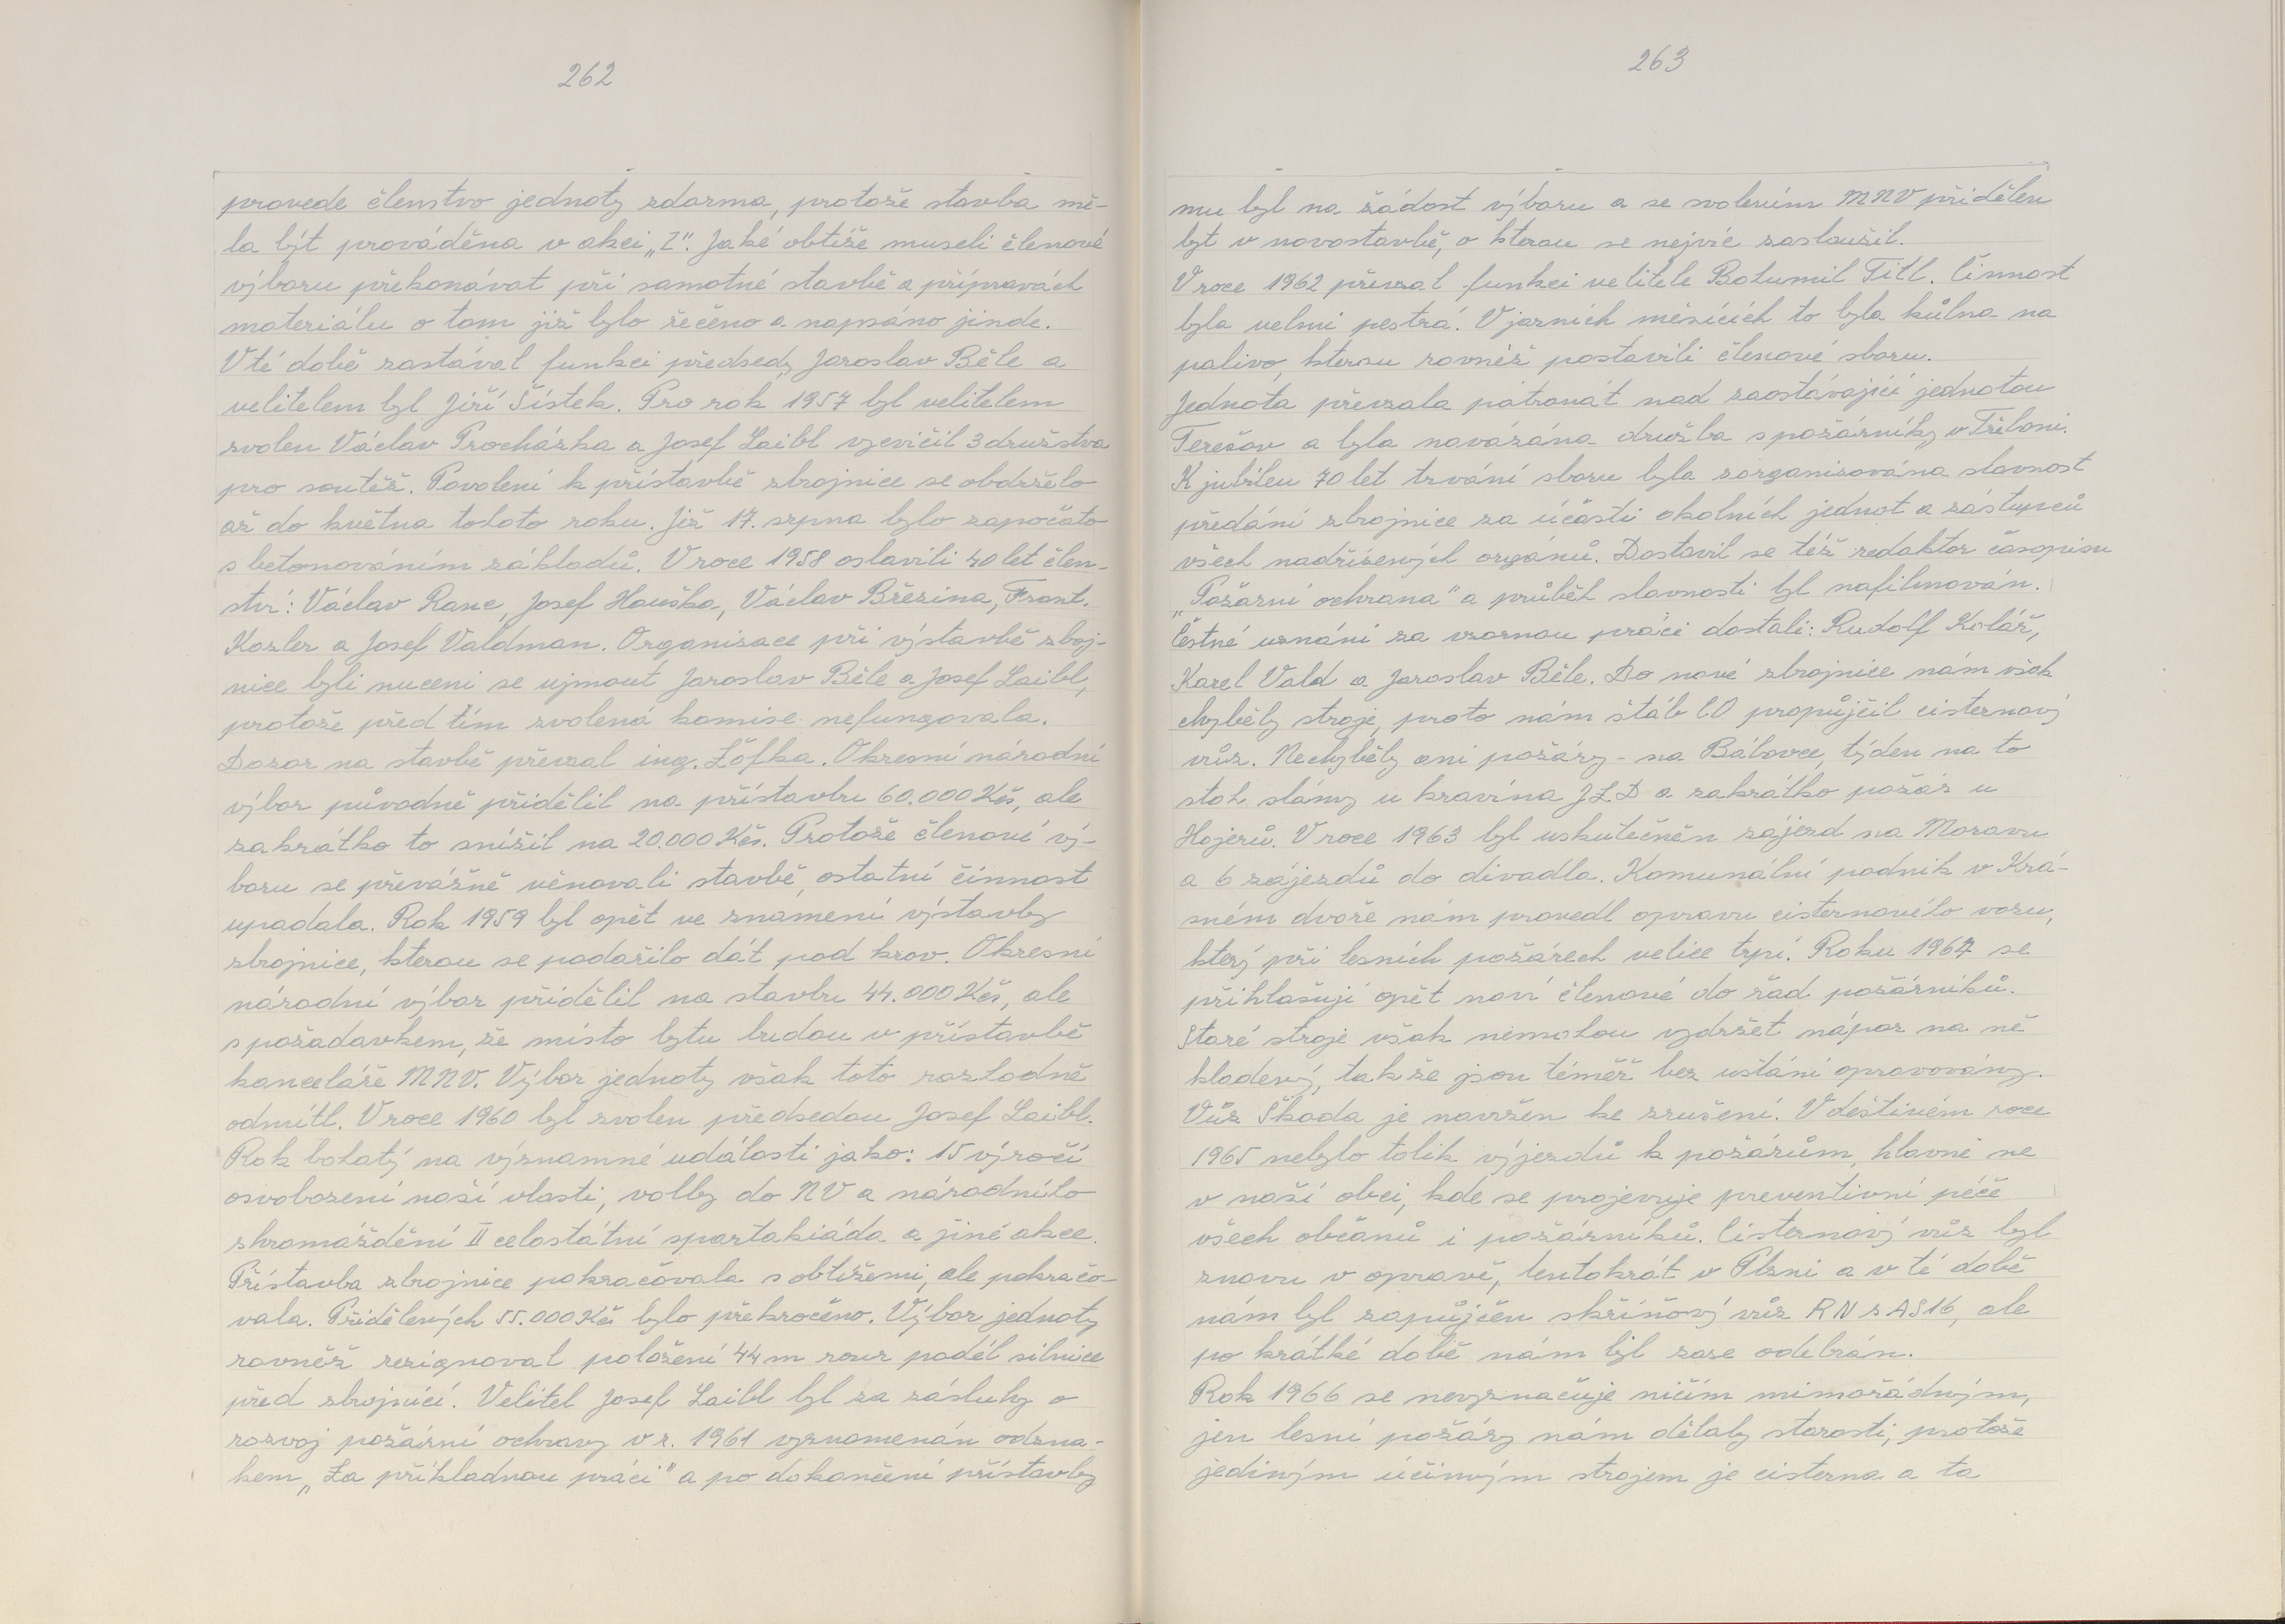 262
provede členstvo jednoty zdarma, protože stavba mě-
la být prováděna v akci „Z". Jaké obtíže museli členové
výboru překonávat při samotné stavbě a přípravách
materiálu o tom již bylo řečeno a napsáno jinde.
V té době zastával funkci předsedy Jaroslav Běle a
velitelem byl Jiří Šístek. Pro rok 1957 byl velitelem
zvolen Václav Procházka a Josef Laibl vycvičil 3 družstva
pro soutěž. Povolení k přístavbě zbrojnice se obdrželo
až do května tohoto roku. Již 17. srpna bylo započato
s betonováním základů. V roce 1958 oslavili 40 let člen-
ství: Václav Ranc, Josef Houška, Václav Březina, Frant.
Kozler a Josef Valdman. Organizace při výstavbě zboj-
nice byli nuceni se ujmout Jaroslav Běle a Josef Laibl,
protože před tím zvolená komise nefungovala.
Dozor na stavbě převzal ing. Žófka. Okresní národní
výbor původně přidělil na přístavbu 60.000 Kčs, ale
zakrátko to snížil na 20.000 Kčs. Protože členové vý-
boru se převážně věnovali stavbě, ostatní činnost
upadala. Rok 1959 byl opět ve znamení výstavby
zbrojnice, kterou se podařilo dát pod krov. Okresní
národní výbor přidělil na stavbu 44.000 Kčs, ale
s požadavkem, že místo bytu budou v přístavbě
kanceláře MNV. Výbor jednoty však toto rozhodně
odmítl. V roce 1960 byl zvolen předsedou Josef Laibl.
Rok bohatý na významné události jako: 15 výročí
osvobození naší vlasti, volby do NV a národního
shromáždění II celostátní spartakiáda a jiné akce.
Přístavba zbrojnice pokračovala s obtížemi, ale pokračo-
vala. Přidělených 55.000 Kčs bylo překročeno. Výbor jednoty
rovněž rezignoval položení 44 m rour podél silnice
před zbrojnicí. Velitel Josef Laibl byl za zásluhy o
rozvoj požární ochrany v r. 1961 vyznamenán odzna-
kem „Za příkladnou práci" a po dokončení přístavby
263
mu byl na žádost výboru a se svolením MNV přidělen
byt v novostavbě, o kterou se nejvíc zasloužil.
V roce 1962 převzal funkci velitele Bohumil Titl. Činnost
byla velmi pestrá. V jarních měsících to byla kůlna na
palivo, kterou rovněž postavili členové sboru.
Jednota převzala patronát nad zaostávající jednotou
Terešov a byla navázána družba s požárníky v Třeboni.
K jubileu 70 let trvání sboru byla zorganizována slavnost
předání zbrojnice za účasti okolních jednot a zástupců
všech nadřízených orgánů. Dostavil se též redaktor časopisu
„Požární ochrana" a průběh slavnosti byl nafilmován.
Čestné uznání za vzornou práci dostali: Rudolf Kolář,
Karel Vald a Jaroslav Běle. Do nové zbrojnice nám však
chyběly stroje, proto nám štáb CO propůjčil cisternový
vůz. Nechyběly ani požáry - na Bábovce, týden na to
stoh slámy u kravína JZD a zakrátko požár u
Hojerů. V roce 1963 byl uskutečněn zájezd na Moravu
a 6 zájezdů do divadla. Komunální podnik v Krá-
sném dvoře nám provedl opravu cisternového vozu,
který při lesních požárech velice trpí. Roku 1964 se
přihlašují opět noví členové do řad požárníků.
Staré stroje však nemohou vydržet nápor na ně
kladený, takže jsou téměř bez ustání opravovány.
Vůz Škoda je navržen ke zrušení. V deštivém roce
1965 nebylo tolik výjezdů k požárům, hlavně ne
v naší obci, kde se projevuje preventivní péče
všech občanů i požárníků. Cisternový vůz byl
znovu v opravě, tentokrát v Plzni a v té době
nám byl zapůjčen skříňový vůz RN z AS16, ale
po krátké době nám byl zase odebrán.
Rok 1966 se nevyznačuje ničím mimořádným,
jen lesní požáry nám dělaly starosti, protože
jediným účinným strojem je cisterna a ta